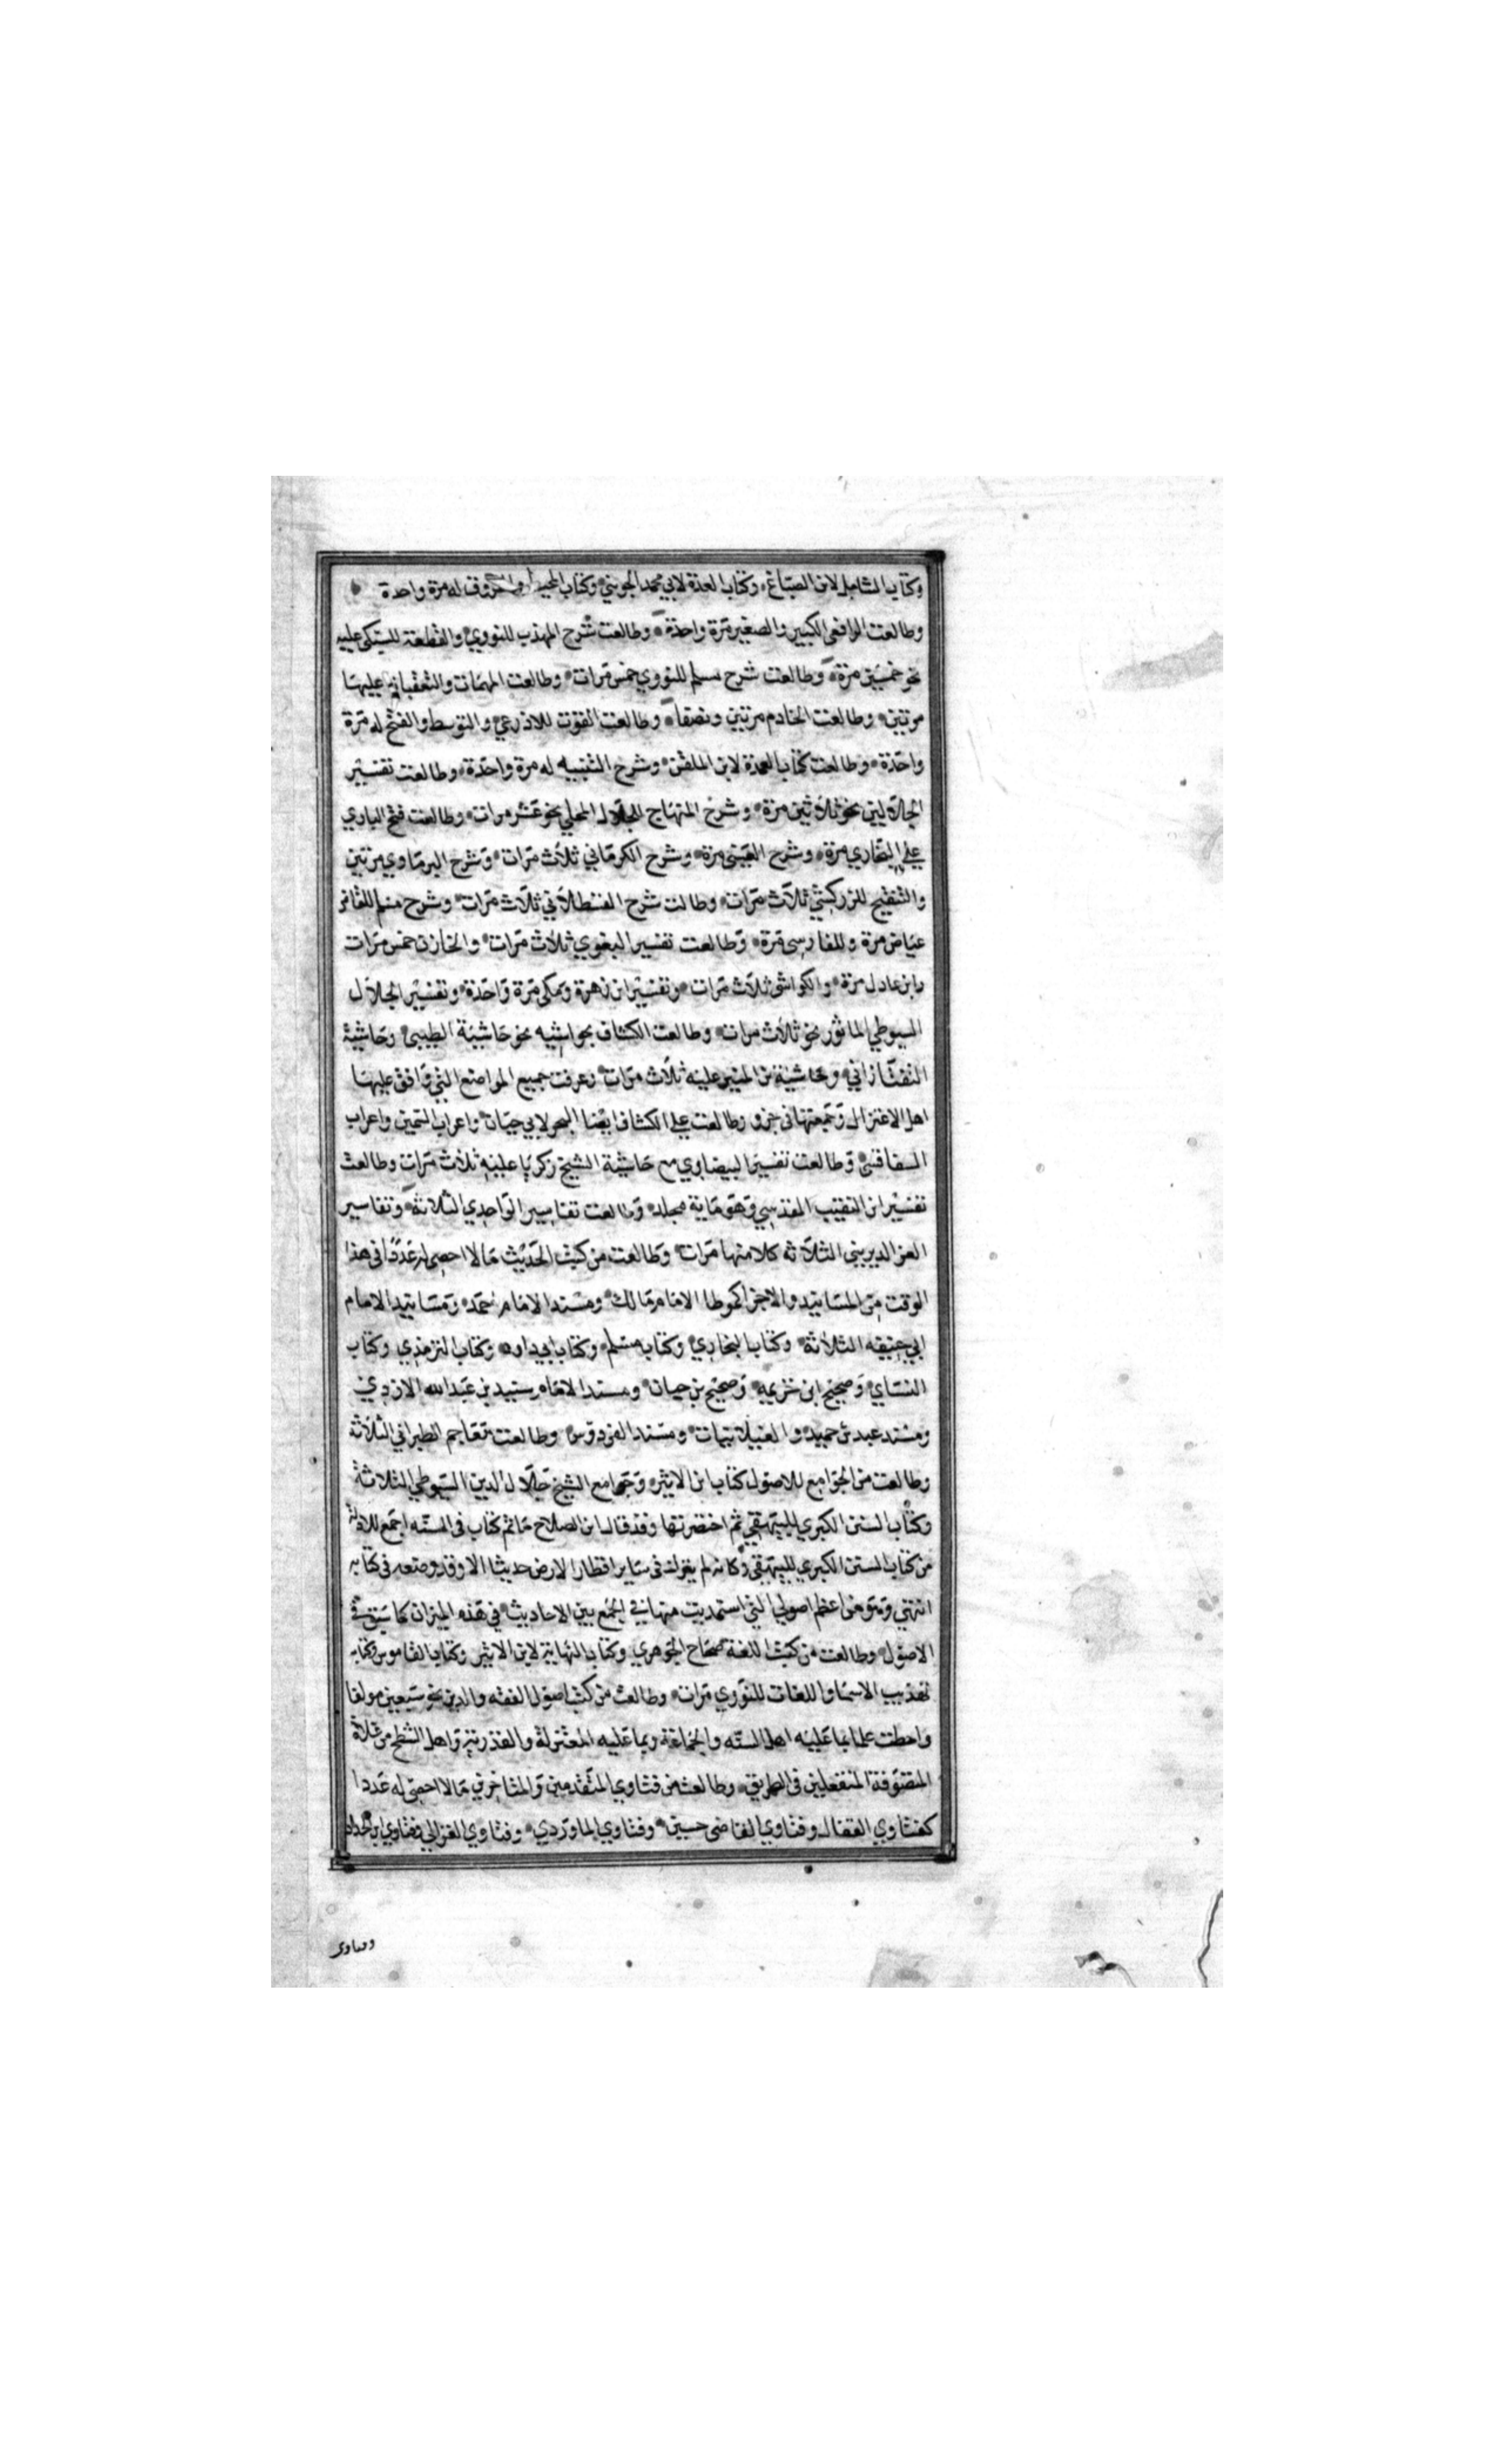 وكتاب الشامل لابن الصباغ وكتاب العدة لابي محمد الجويني وكتاب المحيط والفروق له مرة واحدة
وطالعت الرافعي الكبير والصغير مرة واحدة وطالعت شرح المهذب للنووي والقطعة للسبكي عليه
نحو خمسين مرة وطالعت شرح مسلم للنووي خمس مرات وطالعت المهمات والتعقبات عليها
مرتين وطالعت الخادم مرتين ونصفا وطالعت القوت للاذرعي والتوسط والفتح له مرة
واحدة وطالعت كتاب العمدة لابن الملقن وشرح التنبيه له مرة واحدة وطالعت تفسير
الجلالين نحو ثلاثين مرة وشرح المنهاج للجلال المحلي نحو عشر مرات وطالعت فتح الباري
على البخاري مرة وشرح العيني مرة وشرح الكرماني ثلاث مرات وشرح البرماوي مرتين
والتنقيح للزركشي ثلاث مرات وطالت شرح القسطلاني ثلاث مرات وشرح مسلم للقاضي
عياض مرة وللفارسي مرة وطالعت تفسير البغوي ثلاث مرات والخازن خمس مرات
وابن عادل مرة والكواشي ثلاث مرات وتفسير ابن زهرة ومكي مرة واحدة وتفسير الجلال
السيوطي الماثور نحو ثلاث مرات وطالعت الكشاف بحواشيه نحو حاشية الطيبي وحاشية
التفتازاني وحاشية بن المنير عليه ثلاث مرات وعرفت جميع المواضع التي وافق عليها
اهل الاعتزال وجمعتها في جزو وطالعت على الكشاف ايضا البحر لابي حيان واعراب السمين واعراب
السفاقسي وطالعت تفسير البيضاوي مع حاشية الشيخ زكريا عليه ثلاث مرات وطالعت
تفسير ابن النقيب المقدسي وهو ماية مجلد وطالعت تفاسير الواحدي الثلاثة وتفاسير
العز الديريني الثلاثه كلا منها مرات وطالعت من كتب الحديث ما لا احصى له عددا في هذا
الوقت من المسانيد والاجزا كموطا الامام مالك ومسند الامام احمد ومسانيد الامام
ابي حنيفه الثلاثة وكتاب البخاري وكتاب مسلم وكتاب ابي داود وكتاب الترمذي وكتاب
النساي وصحيح ابن خزيمه وصحيح بن حبان ومسند الامام سنيد بن عبد الله الازدي
ومسند عبد بن حميد والغيلانيات ومسند الفردوس وطالعت معاجم الطبراني الثلاثة
وطالعت من الجوامع للاصول كتاب ابن الاثير وجوامع الشيخ جلال الدين السيوطي الثلاثة
وكتاب السنن الكبري للبيهقي ثم اختصرتها وقد قال ابن الصلاح ما تم كتاب في السنه اجمع للادلة
من كتاب السنن الكبري للبيهقي وكانه لم يترك في ساير اقطار الارض حديثا الا وقد وضعه في كتابه
انتهي وهو من اعظم اصولي التي استمديت منها في الجمع بين الاحاديث في هذه الميزان كما سبق في
الاصول وطالعت من كتب اللغة صحاح الجوهري وكتاب النهاية لابن الاثير وكتاب القاموس وكتاب
تهذيب الاسما واللغات للنووي مرات وطالعت من كتب اصول الفقه والدين نحو سبعين مولفا
واحطت علما بما عليه اهل السنه والجماعة وبما عليه المعتزلة والقدرية واهل الشطح من غلاة
المتصوفة المتفعلين في الطريق وطالعت من فتاوي المتقدمين والمتاخرين ما لا احصى له عددا
كفتاوي القفال وفتاوي القاضي حسين وفتاوي الماوردي وفتاوي الغزالي وفتاوي ابن الحداد
وفتاوي